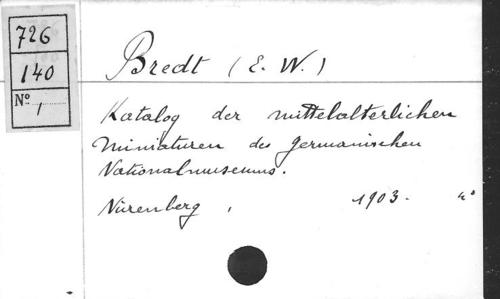 726
140
Nº 1
Bredt (E. W.)
Katalog der mittelalterlichen
Miniaturen des germanischen
Nationalmuseums.
Nürenberg, 1903. 4º